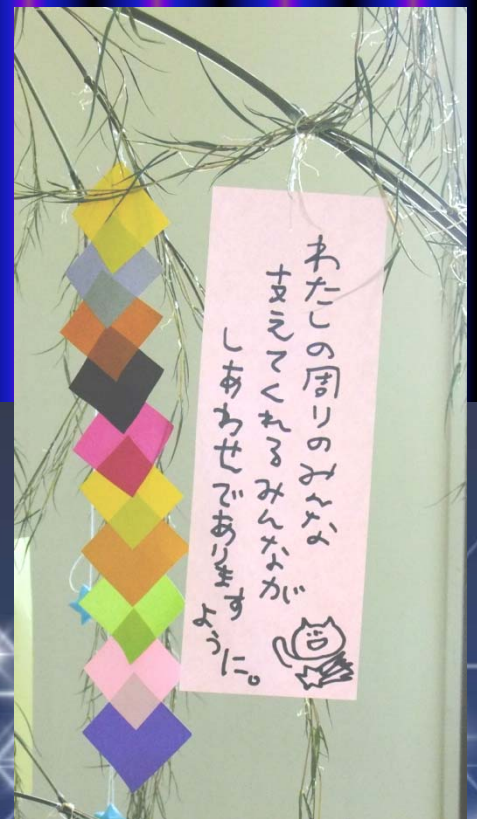 わたしの周りのみんな
支えてくれるみんなが
しあわせであります
ように。